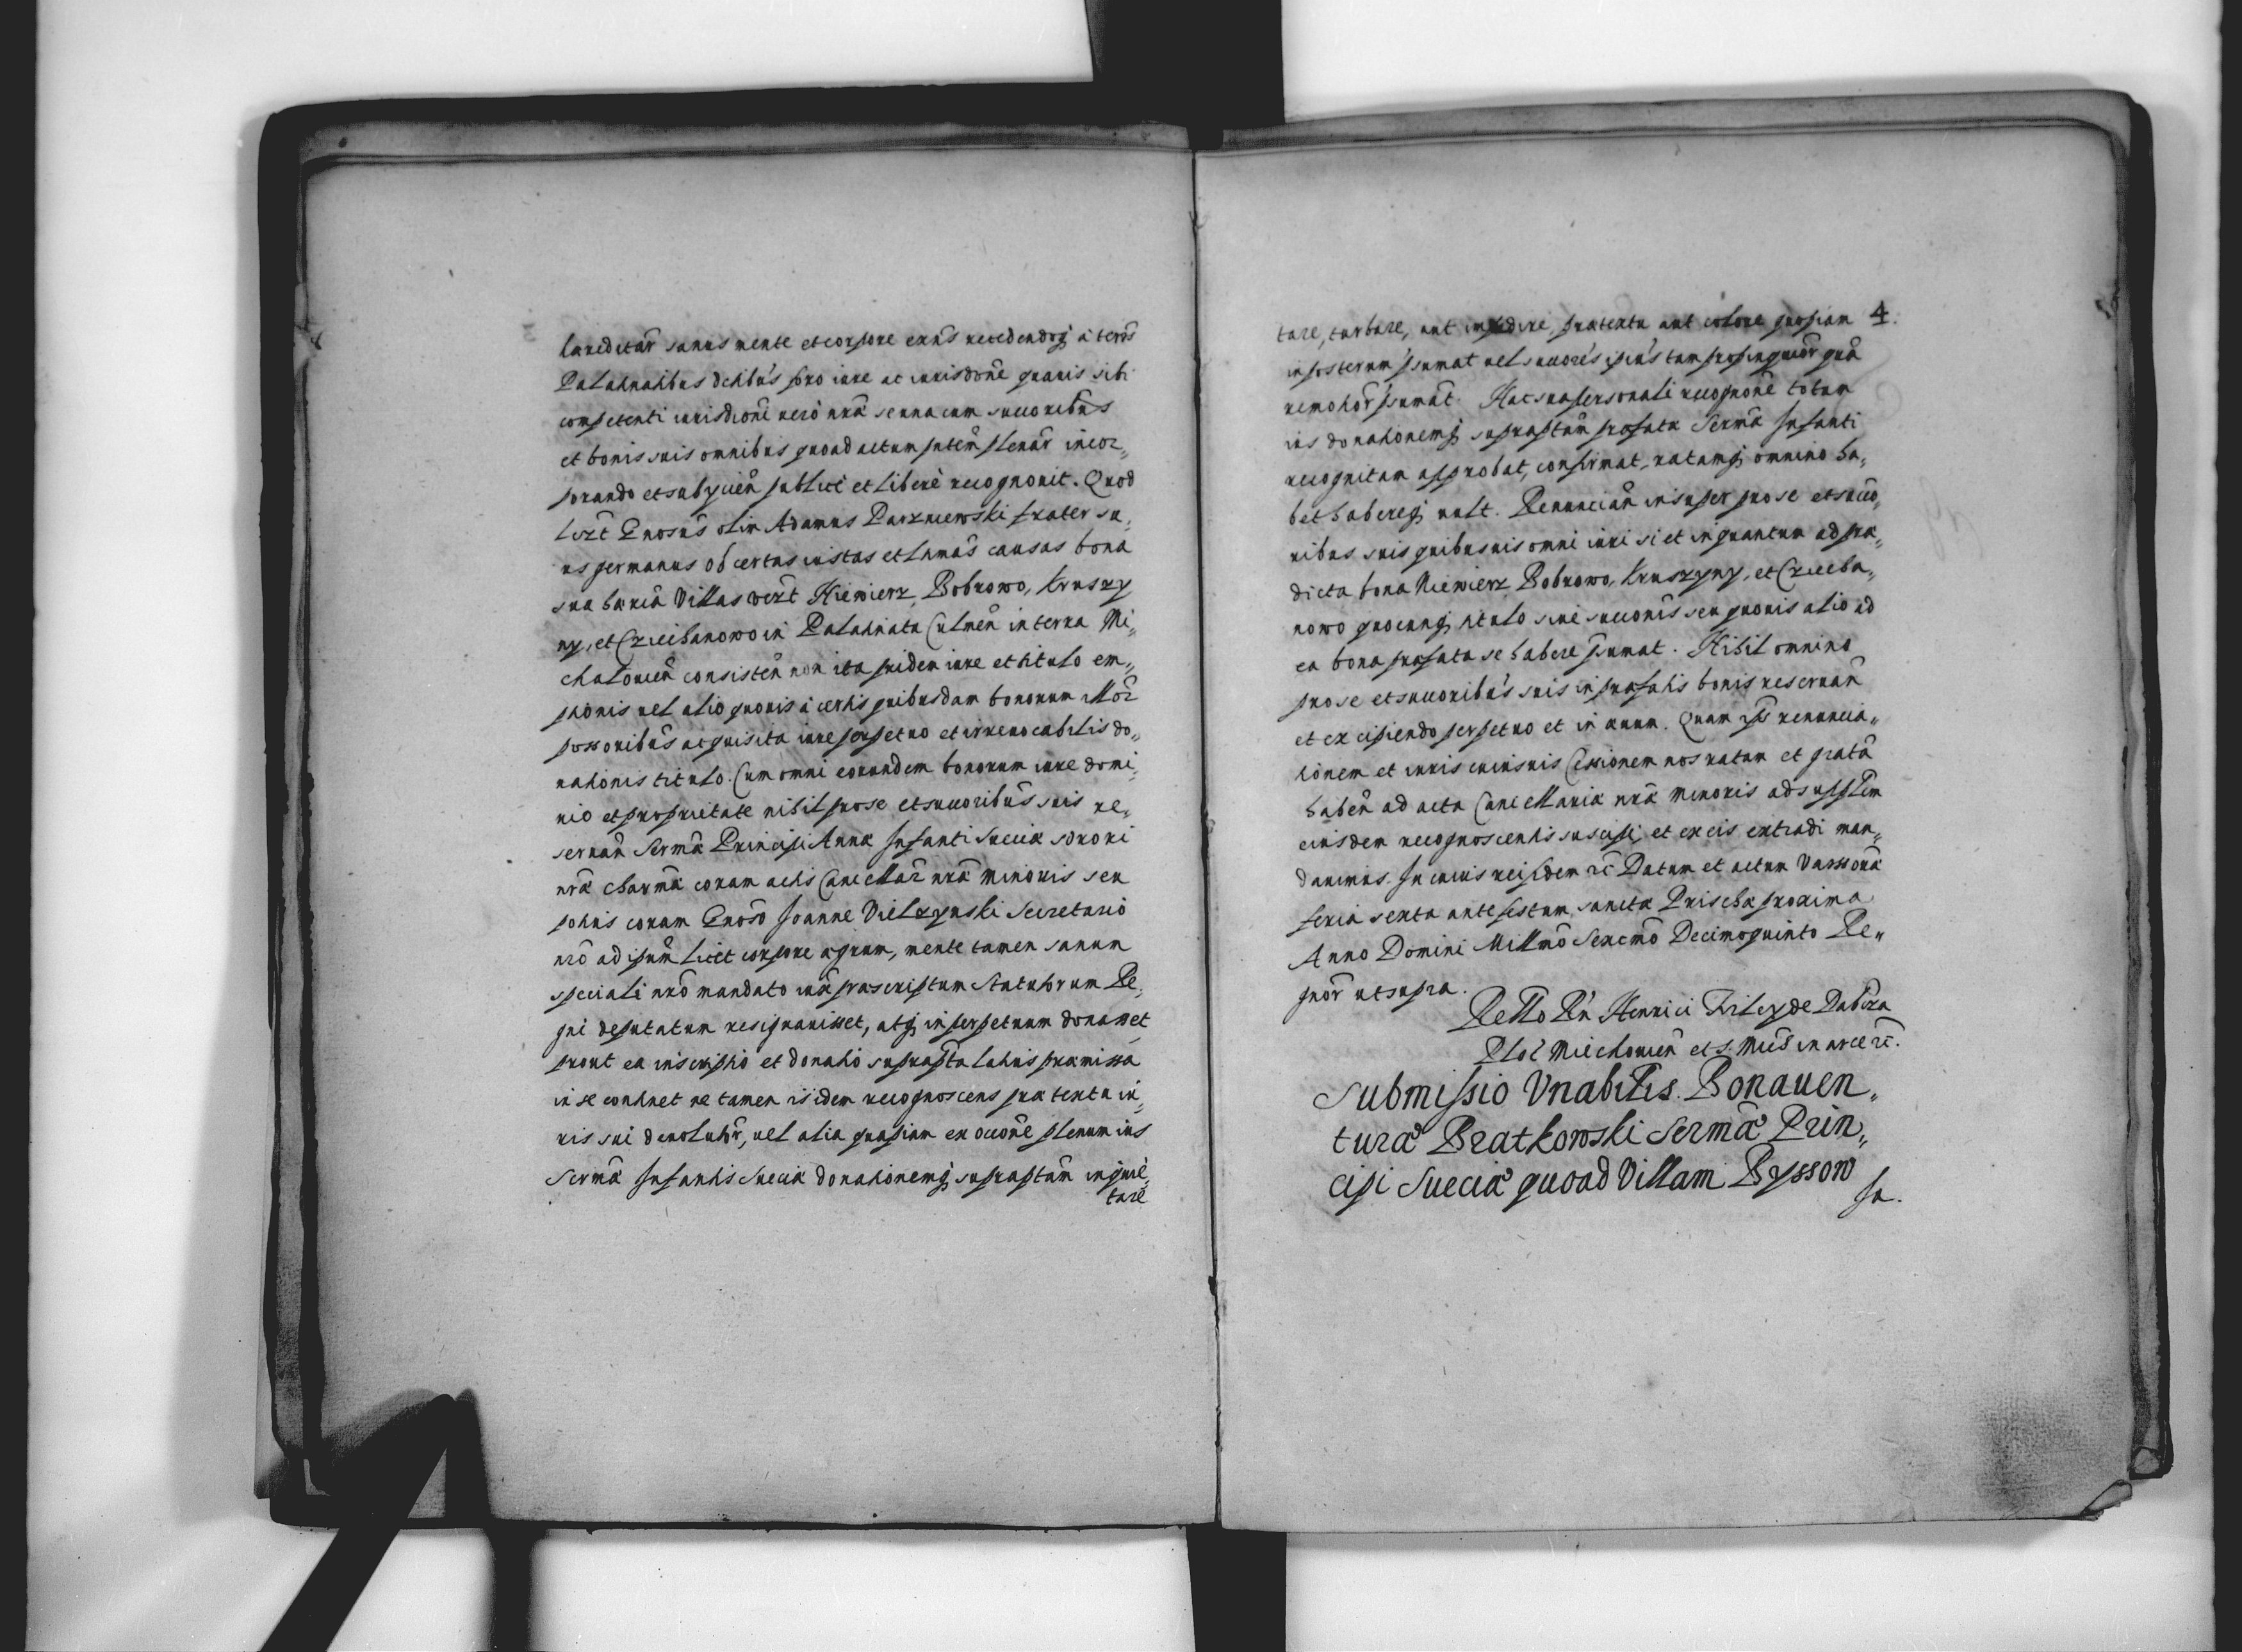 hæreditar̃ sanus mente et corpore exñs recedendoq́ à terris
Palatinatibus debĩs foro iure ac iurisdõne quauis sibi
competenti iurisdioni uerò nr̃æ se una cum succoribũs
et bonis suis omnibus quoad actum pñtem plenar̃ incor„
porando et subÿcień publicè et liberè recognouit. Quod
licèt Gnosũs olim Adamus Parzniewski frater su„
us germanus ob certas iustas et ltimas causas bona
sua hæria Villas vczt Niewierz, Bobrowo, Kruszy„
ny, et Czicibanowo in Palatinatu Culmeñ in terra Mi„
chalouień consisteń non ita pridem iure et titulo em„
ptionis uel alio quouis à certis quibusdam bonorum illor̃
possoribũs acquisita iure perpetuo et irreuocabilis do„
nationis titulo. Cum omni eorundem bonorum iure domi„
nio et proprietate nihil pro se et succoribũs suis re„
seruań Sermæ Principi Annæ Infanti Sueciæ sorori
nr̃æ charmæ coram actis Cancellar̃ nr̃æ minoris seu
potius coram Gnoso Joanne Vielzynski Secretario
nr̃o ad ipsum licèt corpore ægrum, mente tamen sanum
speciali nr̃o mandato iux̃ præscriptum Statutorum Re„
gni deputatum resignauisset, atq́ in perpetuum donasset
prout ea inscriptio et donatio suprapta latius præmissa
in se continet ne tamen is idem recognoscens præ textu iu„
ris sui deuolutor̃, uel alia quapiam ex occõne plenum ius
Sermæ Infantis Sueciæ donationemq́ supraptam inquie„
tare
4.
tare, turbare, aut impedire, prætextu aut colore quopiam
in posterum p̃sumat uel succores ipsius tam propinquior̃ quã
remotior̃ p̃sumãt. Hac sua personali recognõne totum
ius donationemq́ supraptam præfatæ Sermæ Infanti
recognitam approbat, confirmat, ratamq́ omnino ha„
bet habereq́ uult. Renuncian̄ insuper pro se et succo„
ribus suis quibusuis omni iuri si et in quantum ad præ„
dicta bona Niewierz Bobrowo, Kruszyny, et Cziciba„
nowo quocunq́ titulo siue succonis seu quouis alio ad
ea bona præfata se habere p̃sumat. Nihil omnino
pro se et succoribũs suis in præfatis bonis reseruań
et excipiendo perpetuo et in æuum. Quam ip̃s renuncia„
tionem et iuris cuiusuis Cessionem nos ratam et gratã
habeñ ad acta Cancellariæ nr̃æ minoris ad supplem
eiusdem recognoscentis suscipi, et ex eis extradi man„
dauimus. In cuius rei fidem rc̃ Datum et actum Varssouiæ
feria sexta ante festum sanctæ Priscæ proxima
Anno Domini Millmo Sexcmo Decimoquinto Re„
gnor̃ ut supra.
Rello Rñ Henrici Firley de Dabra
Ploc̃ Miechouień et S. Mic̃s in arce rc̃.
Submissio Vnabilis. Bonauen„
turæ Bratkowski Sermæ Prin„
cipi Sueciæ quoad Villam Byssow
sa.